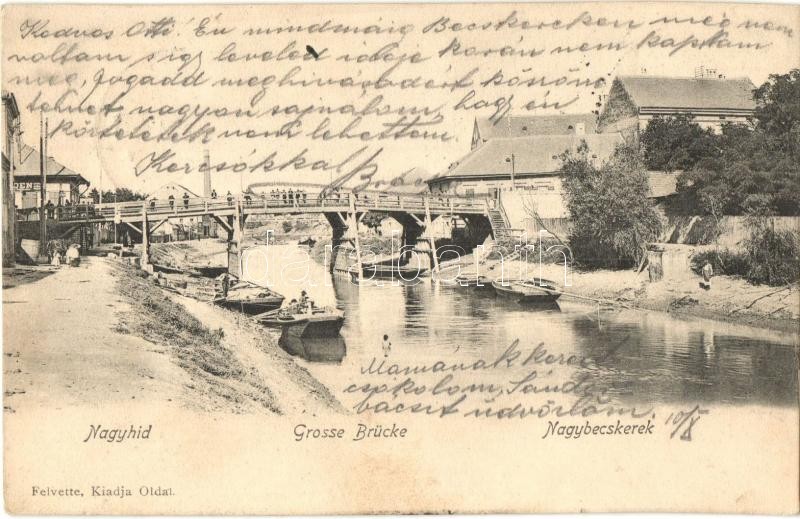 Kedves Otti! Én mindmáig Becskereken még nem
voltam s így leveled ideje korán nem kaptam
meg, fogadd meghívásodért köszöne-
temet nagyon sajnálom, hogy én
köztetek nem lehettem
Kezcsókkal
DEN
darabanth
Mamának kezed
csokolom, Sándor
bácsit üdvözlöm.
10/X
Nagyhid
Grosse Brücke
Nagybecskerek
Felvette, Kiadja Oldal.